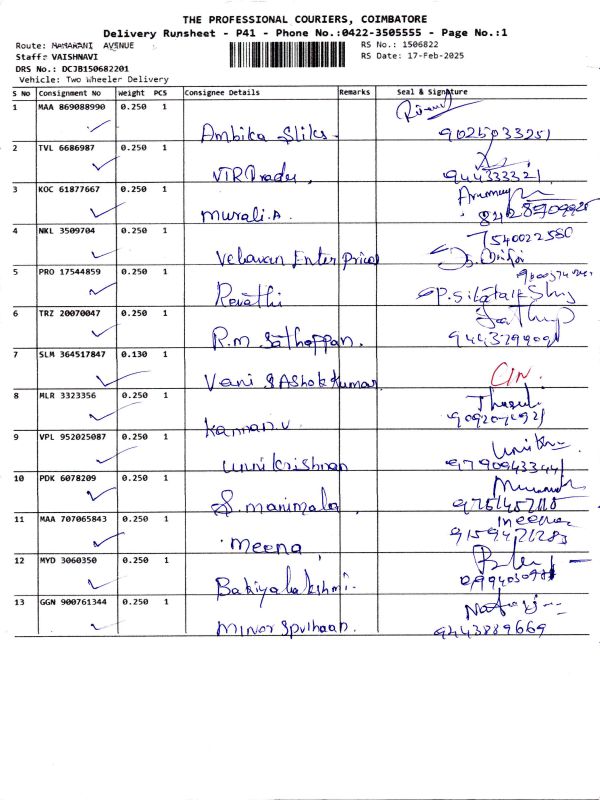 THE PROFESSIONAL COURIERS, COIMBATORE
Delivery Runsheet - P41 - Phone No.:0422-3505555 - Page No.:1
Route: MAHARANI AVENUE
RS No.: 1506822
Staff: VAISHNAVI
RS Date: 17-Feb-2025
DRS No.: DCJB150682201
Vehicle: Two Wheeler Delivery
S No Consignment No Weight PCS Consignee Details Remarks Seal & Signature
1 MAA 869088990 0.250 1
Ambika Sliks 9025033251
2 TVL 6686987 0.250 1
VTR Trader, 944333321
3 KOC 61877667 0.250 1
Murali.A 8428909925
4 NKL 3509704 0.250 1 7540022580
Velavan Enter Prices
5 PRO 17544859 0.250 1
Revathi
6 TRZ 20070047 0.250 1
R.m. Sathappan.
7 SLM 364517847 0.130 1
Vani & Ashok Kumar
8 MLR 3323356 0.250 1
Kannan.V
9 VPL 952025087 0.250 1
Unnikrishnan 9790943344
10 PDK 6078209 0.250 1
S. manimala
11 MAA 707065843 0.250 1 meena
meena, 9159421283
12 MYD 3060350 0.250 1
Bakiyalakshmi.
13 GGN 900761344 0.250 1
9443889669